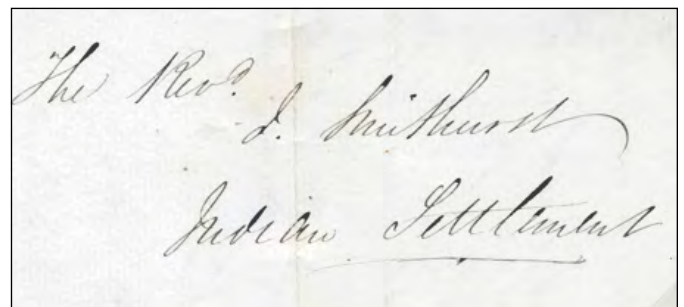 The Revd.
J. Smithurst
Indian Settlement